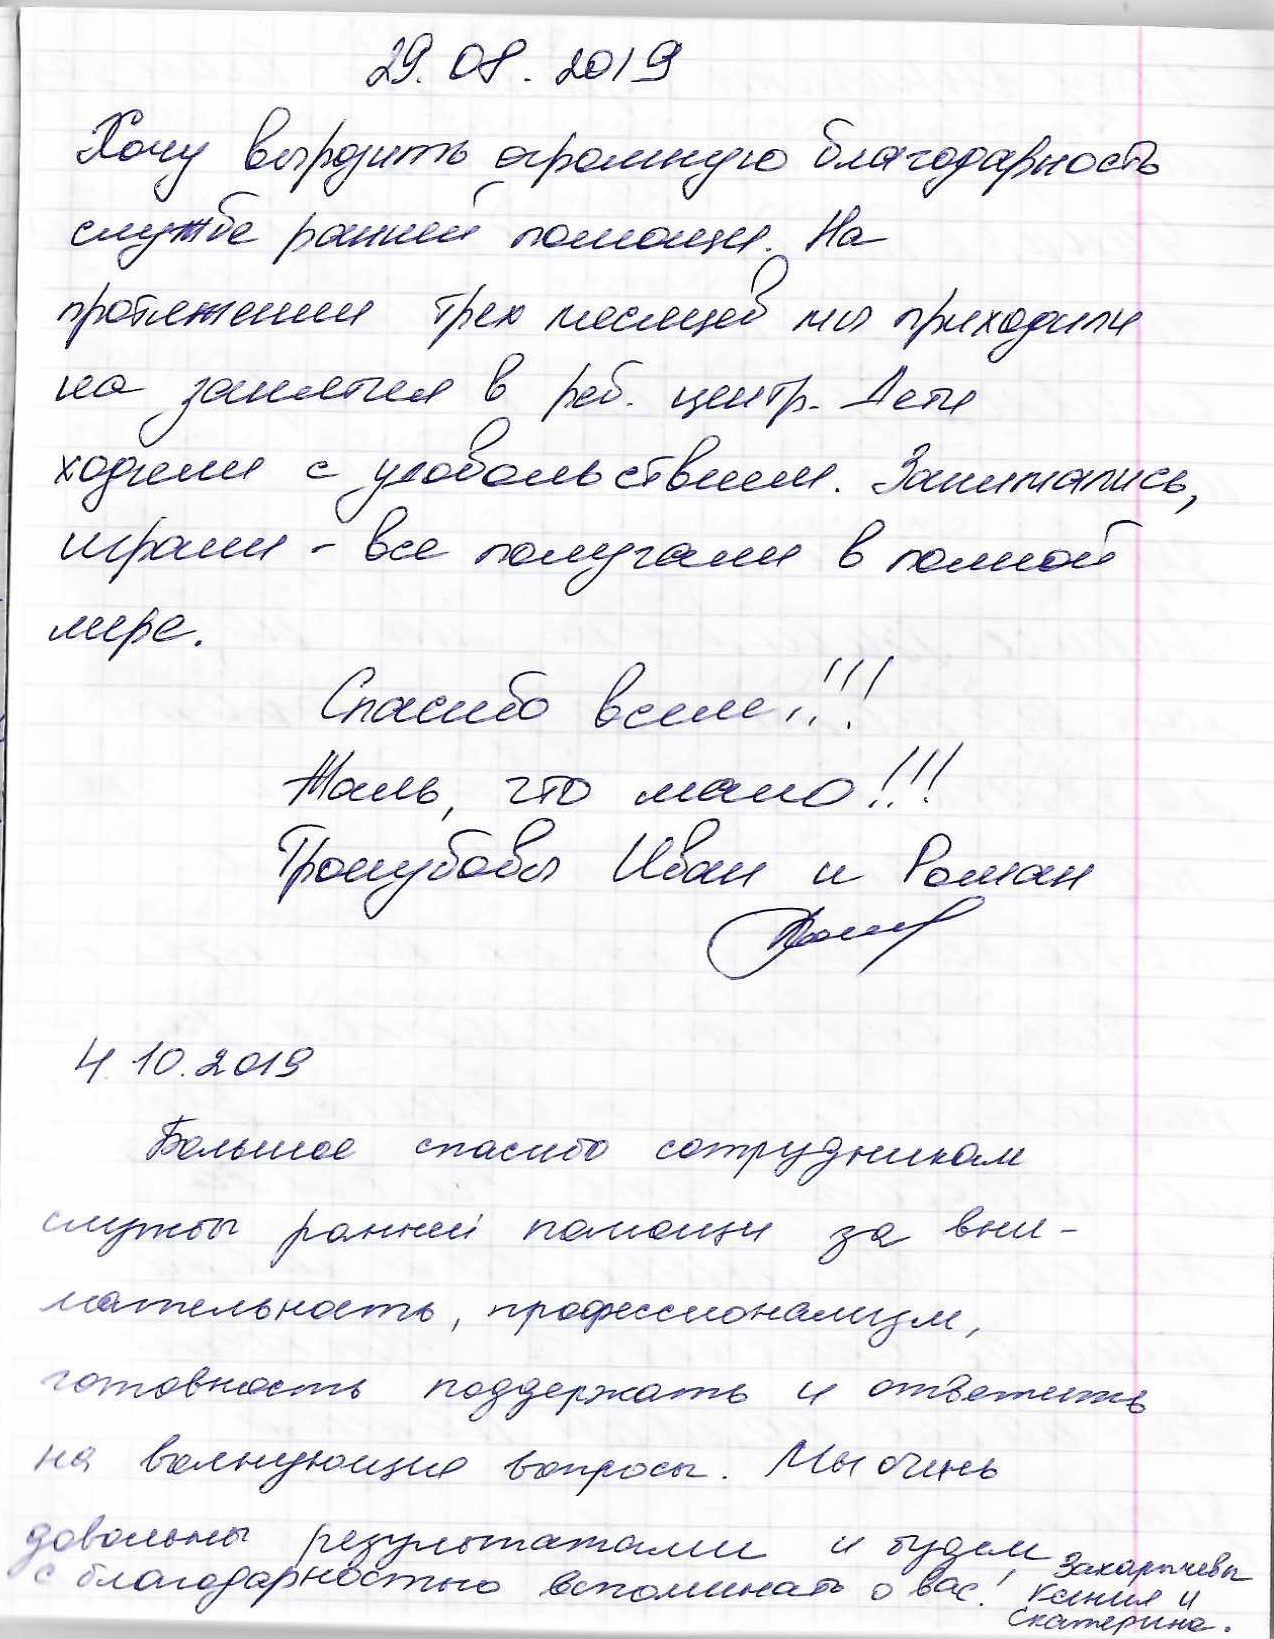 29.08.2019
Хочу выразить огромную благодарность
службе ранней помощи. На
протяжении трех месяцев мы приходили
на занятия в реб. центр. Дети
ходили с удовольствием. Занимались,
играли - все получали в полной
мере.
Спасибо всем!!!
Жаль, что мало!!!
Иван и Роман
4.10.2019
Большое спасибо сотрудникам
службы ранней помощи за вни-
мательность, профессионализм,
готовность поддержать и ответить
на волнующие вопросы. Мы очень
довольны результатами и будем
с благодарностью вспоминать о вас!
Захарычевы
Ксения и
Екатерина.